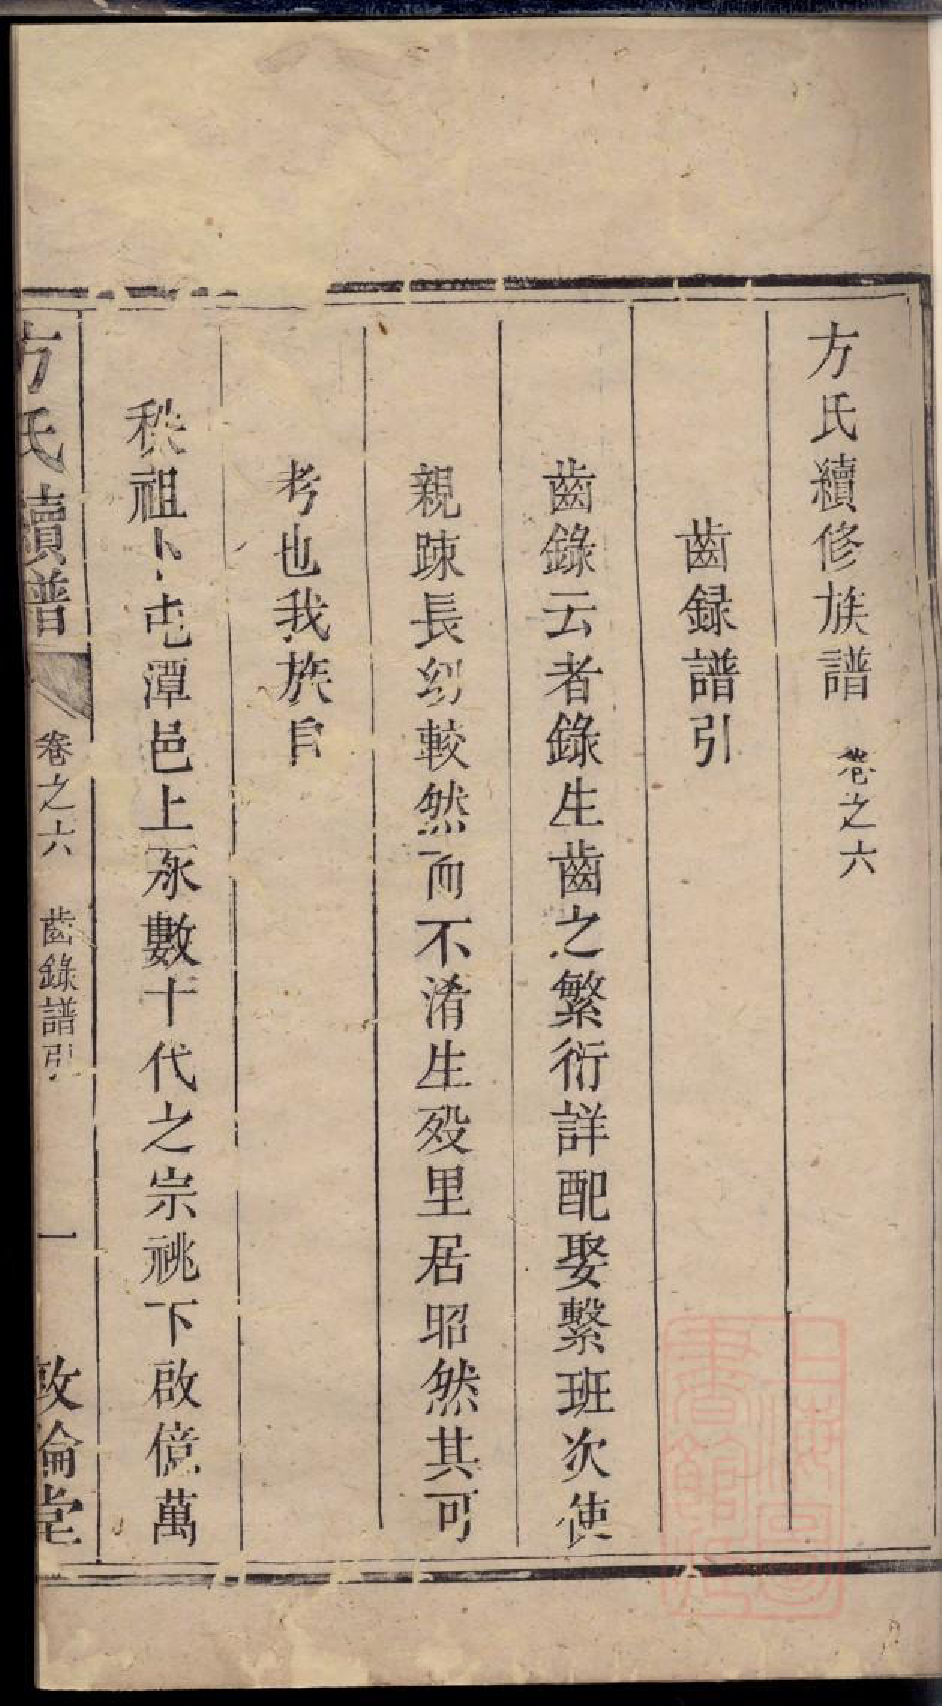 方氏續修族譜 卷之六
齒録譜引
齒錄云者錄生齒之繁衍詳配娶繫班次使
親踈長幼較然而不淆生殁里居昭然其可
考也我族自
秩祖卜屯潭邑上承數十代之宗祧下啟億萬
方氏續譜 卷之六 齒錄譜引 一 敦倫堂